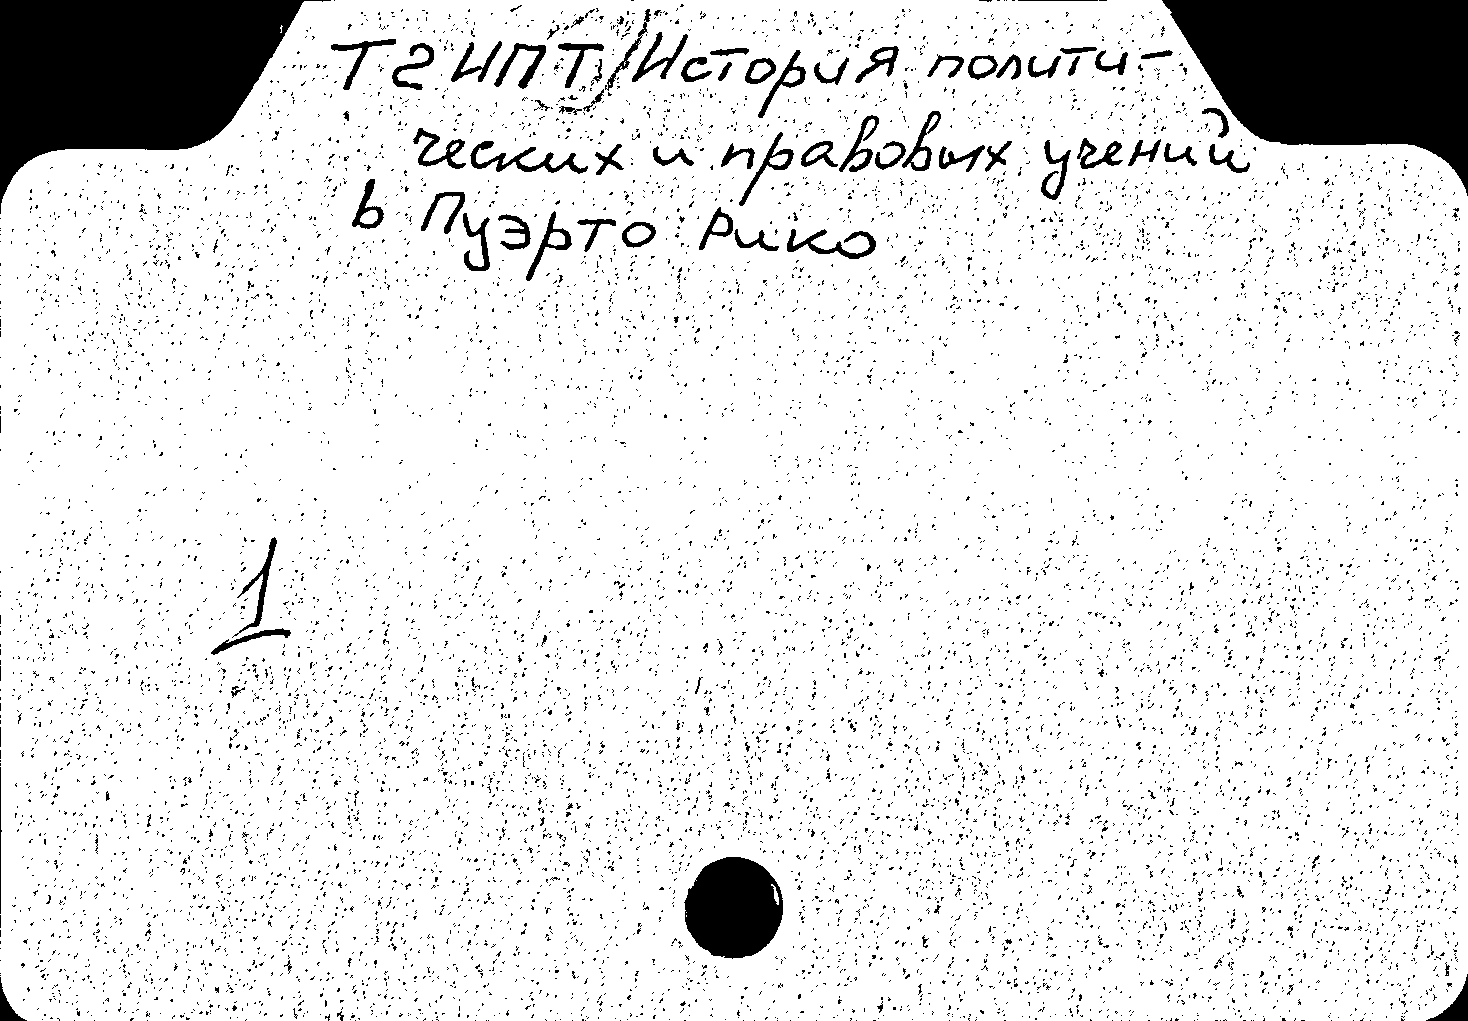 Т2ИПТ/История полити-
ческих и правовых учений
в Пуэрто Рико
1